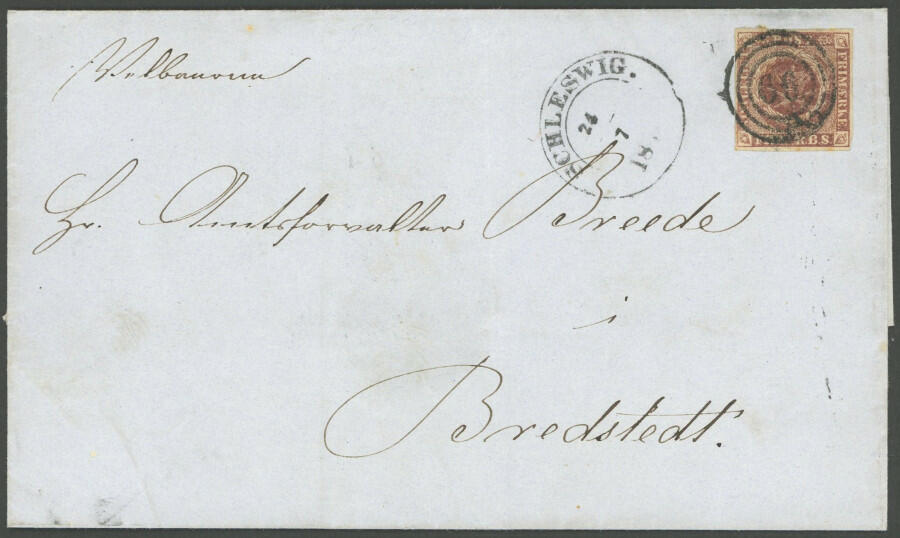 Velbaarne
SCHLESWIG.
24
7
18
FRIMÆRKE
R.B.S.
Hr. Amtsforvalter Breede
i
Bredstedt.